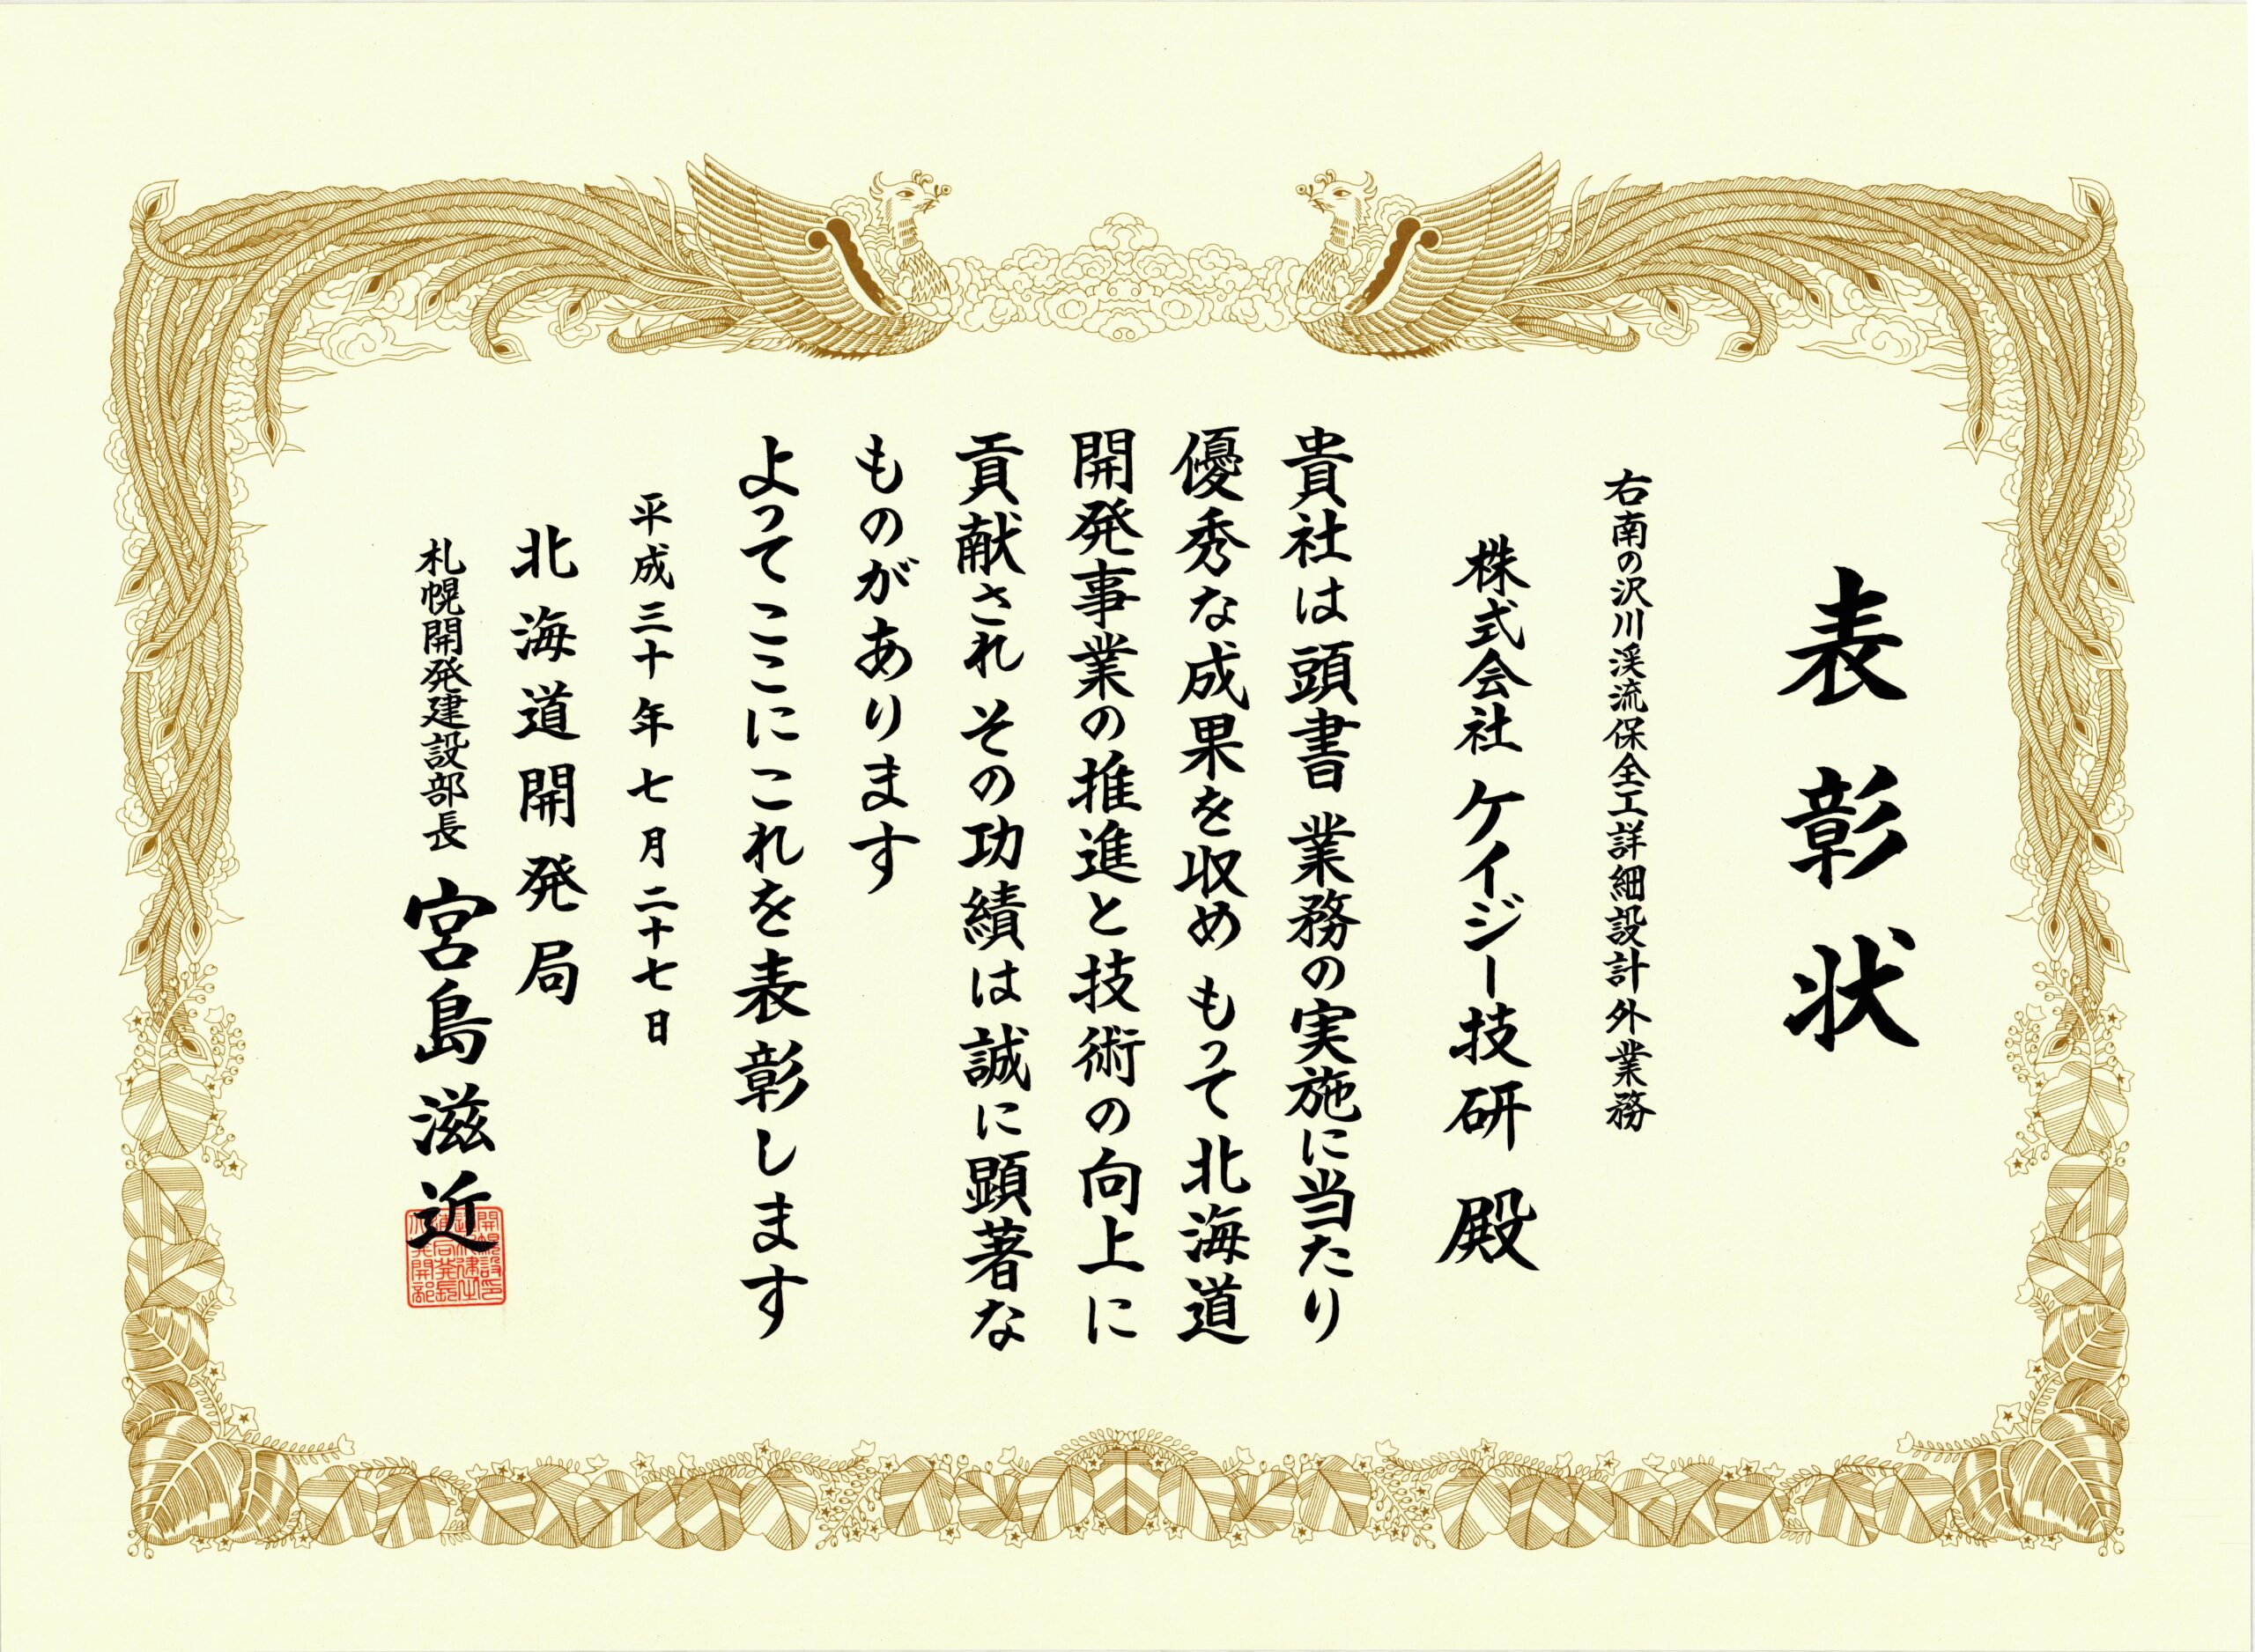 表彰状
右南の沢川渓流保全工詳細設計外業務
株式会社ケイジー技研 殿
貴社は頭書業務の実施に当たり
優秀な成果を収めもって北海道
開発事業の推進と技術の向上に
貢献されその功績は誠に顕著な
ものがあります
よってここにこれを表彰します
平成三十年七月二十七日
北海道開発局
札幌開発建設部長 宮島滋近